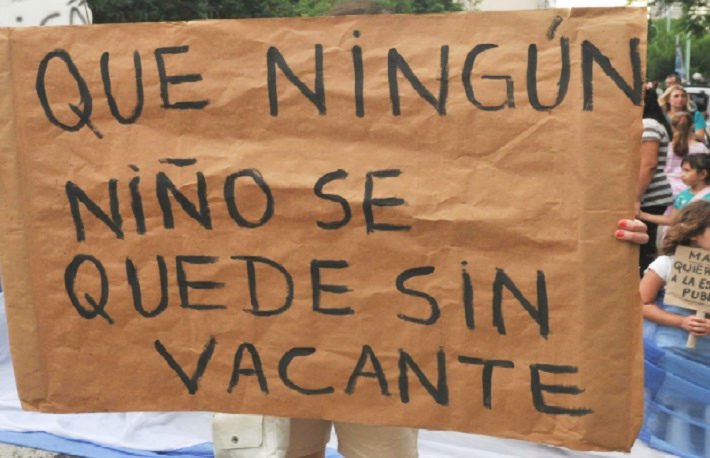 QUE NINGÚN
NIÑO SE
QUEDE SIN
VACANTE
MA
QUIER
A LA ES
PUBL